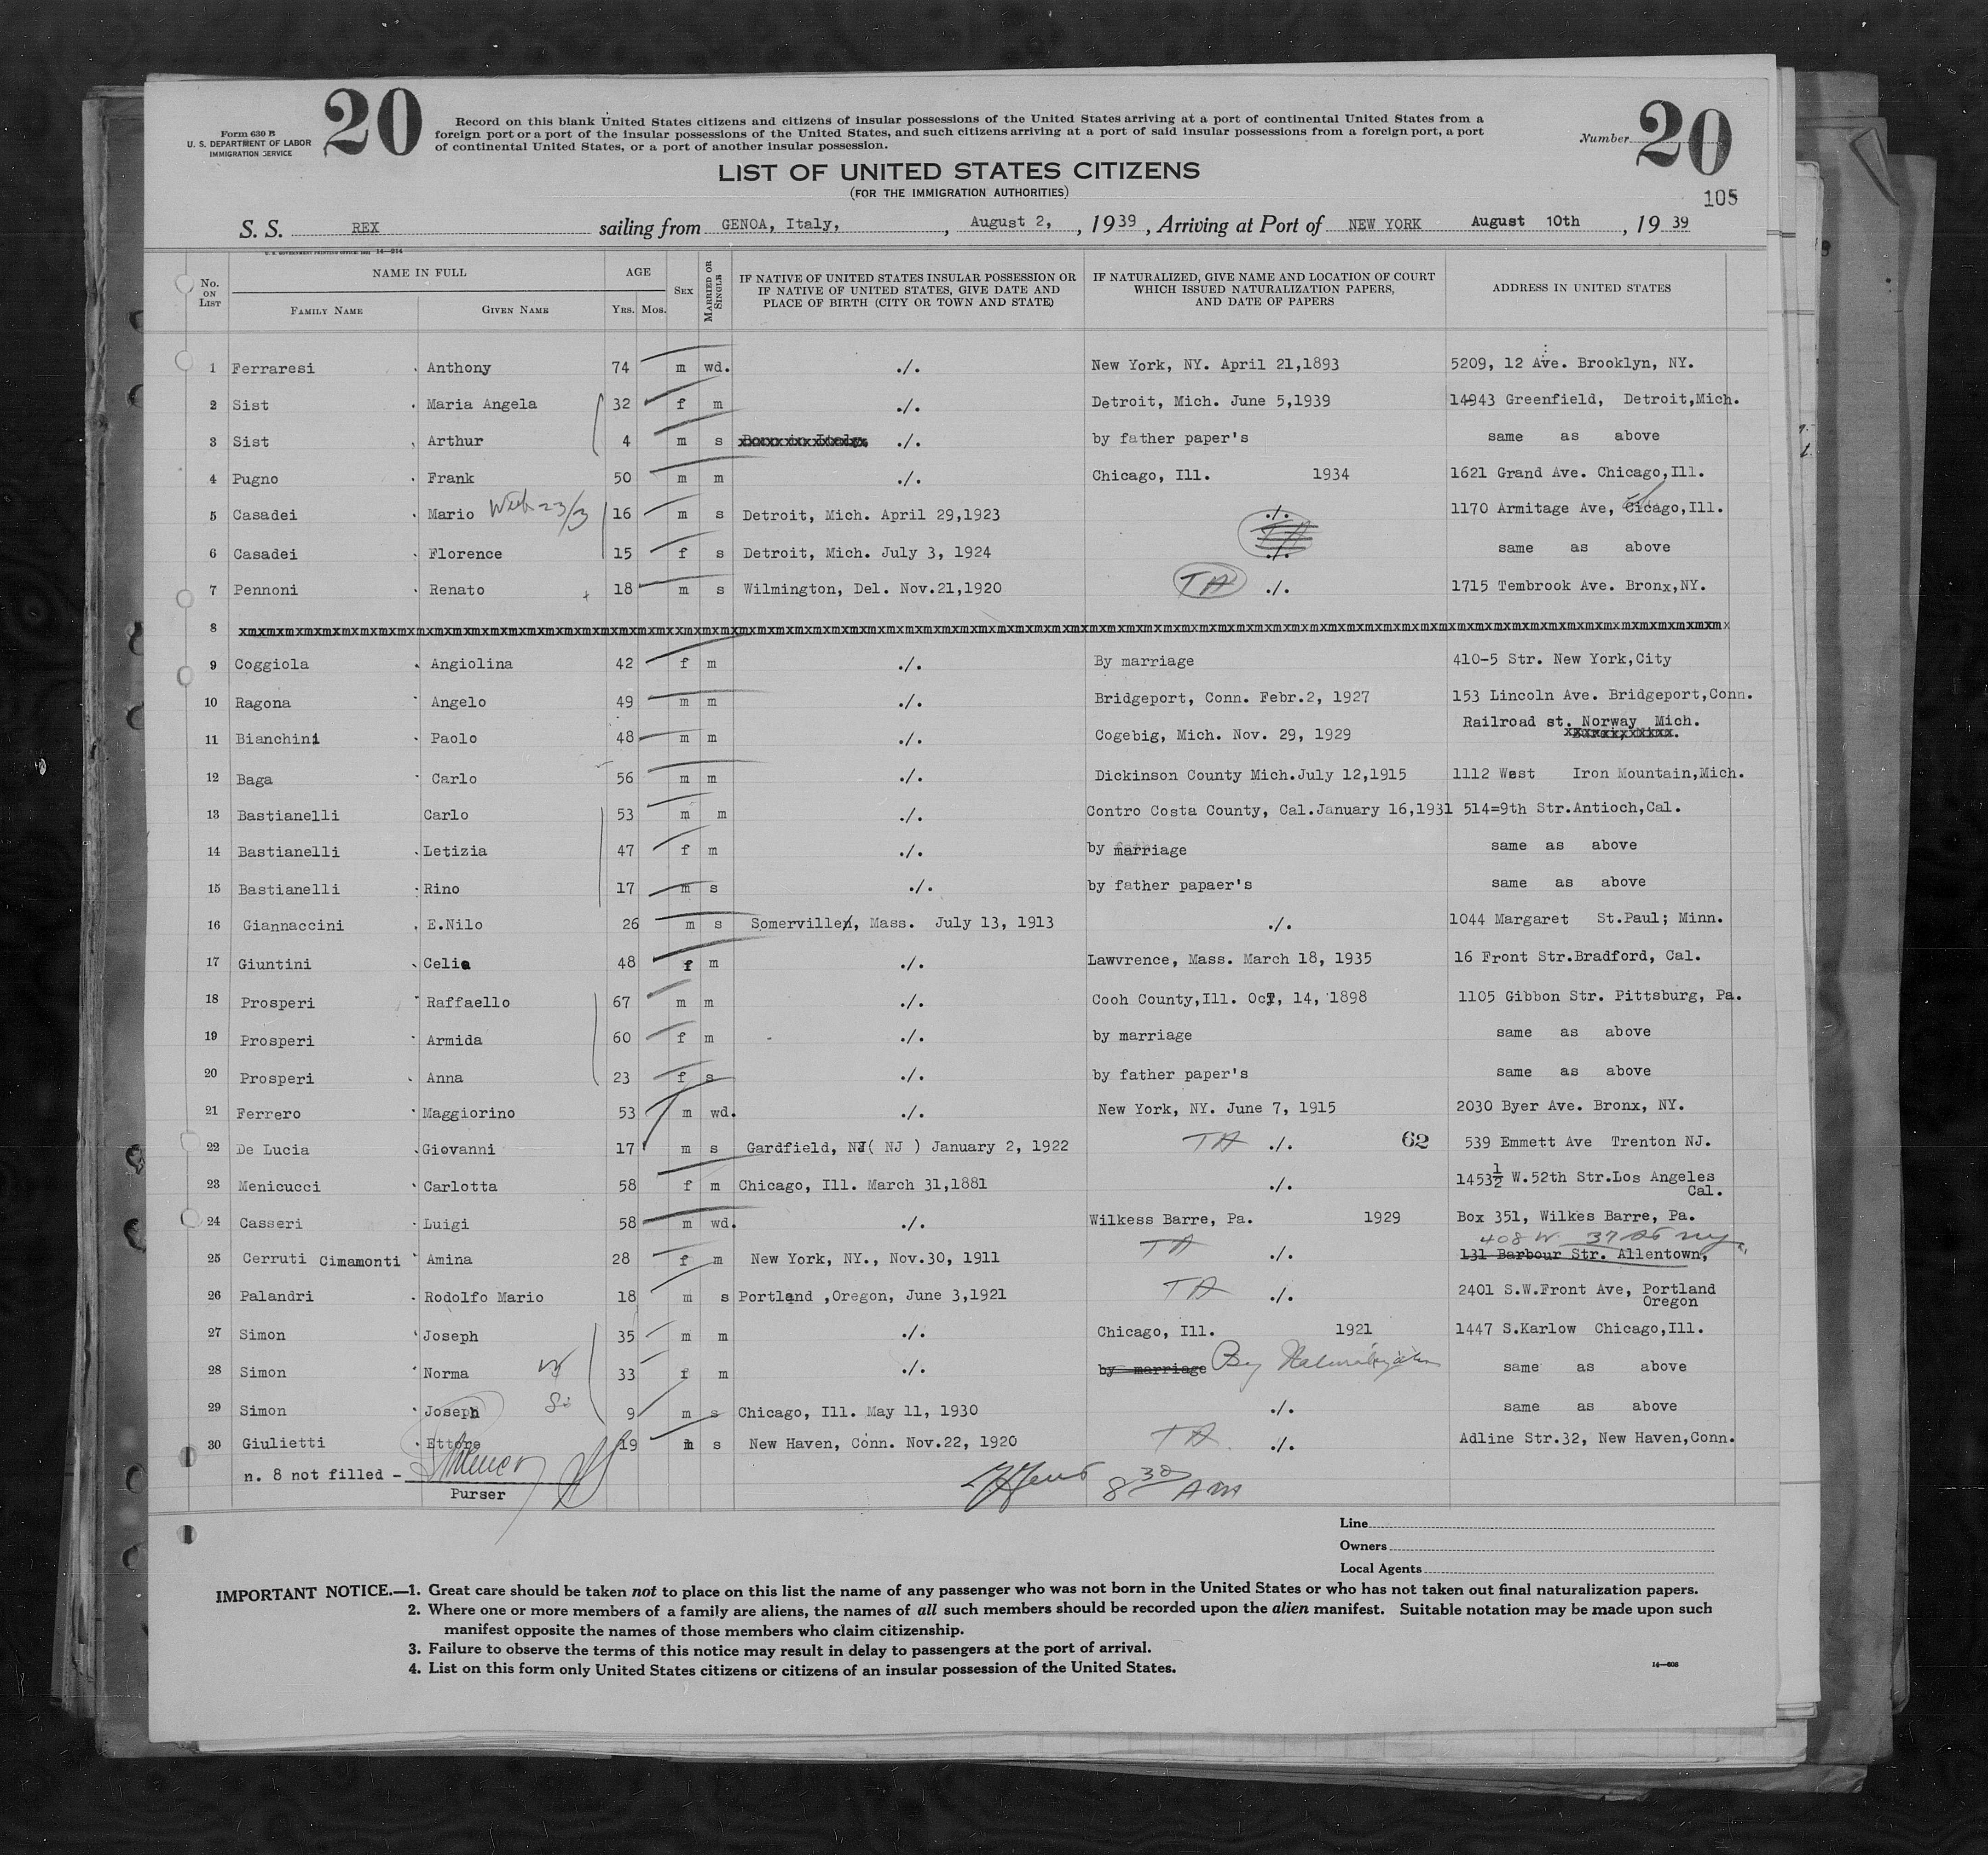 Form 630 B
U. S. DEPARTMENT OF LABOR
IMMIGRATION SERVICE
20
Record on this blank United States citizens and citizens of insular possessions of the United States arriving at a port of continental United States from a
foreign port or a port of the insular possessions of the United States, and such citizens arriving at a port of said insular possessions from a foreign port, a port
of continental United States, or a port of another insular possession.
Number 20
LIST OF UNITED STATES CITIZENS
(FOR THE IMMIGRATION AUTHORITIES)
105
S. S. REX sailing from GENOA, Italy, , August 2, , 1939 , Arriving at Port of NEW YORK August 10th , 19 39
U. S. GOVERNMENT PRINTING OFFICE: 1931 14—214
No. ON LIST NAME IN FULL FAMILY NAME GIVEN NAME AGE YRS. MOS. SEX MARRIED OR SINGLE IF NATIVE OF UNITED STATES INSULAR POSSESSION OR IF NATIVE OF UNITED STATES, GIVE DATE AND PLACE OF BIRTH (CITY OR TOWN AND STATE) IF NATURALIZED, GIVE NAME AND LOCATION OF COURT WHICH ISSUED NATURALIZATION PAPERS, AND DATE OF PAPERS ADDRESS IN UNITED STATES
1 Ferraresi Anthony 74 m wd. ./. New York, NY. April 21,1893 5209, 12 Ave. Brooklyn, NY.
2 Sist Maria Angela 32 f m ./. Detroit, Mich. June 5,1939 14943 Greenfield, Detroit,Mich.
3 Sist Arthur 4 m s ./. by father paper's same as above
4 Pugno Frank 50 m m ./. Chicago, Ill. 1934 1621 Grand Ave. Chicago,Ill.
5 Casadei Mario 16 m s Detroit, Mich. April 29,1923 ./. 1170 Armitage Ave, Cicago,Ill.
6 Casadei Florence 15 f s Detroit, Mich. July 3, 1924 ./. same as above
7 Pennoni Renato 18 m s Wilmington, Del. Nov.21,1920 TA ./. 1715 Tembrook Ave. Bronx,NY.
8 xmxmxmxmxmxmxmxmxmxmxmxmxmxmxmxmxmxmxmxmxmxmxmxmxmxmxmxmxmxmxmxmxmxmxmxmxmxmxmx
9 Coggiola Angiolina 42 f m ./. By marriage 410-5 Str. New York,City
10 Ragona Angelo 49 m m ./. Bridgeport, Conn. Febr.2, 1927 153 Lincoln Ave. Bridgeport,Conn.
11 Bianchini Paolo 48 m m ./. Cogebig, Mich. Nov. 29, 1929 Railroad st. Norway Mich.
12 Baga Carlo 56 m m ./. Dickinson County Mich.July 12,1915 1112 West Iron Mountain,Mich.
13 Bastianelli Carlo 53 m m ./. Contro Costa County, Cal.January 16,1931 514=9th Str.Antioch,Cal.
14 Bastianelli Letizia 47 f m ./. by marriage same as above
15 Bastianelli Rino 17 m s ./. by father papaer's same as above
16 Giannaccini E.Nilo 26 m s Somerville, Mass. July 13, 1913 ./. 1044 Margaret St.Paul; Minn.
17 Giuntini Celia 48 f m ./. Lawvrence, Mass. March 18, 1935 16 Front Str.Bradford, Cal.
18 Prosperi Raffaello 67 m m ./. Cooh County,Ill. Oct, 14, 1898 1105 Gibbon Str. Pittsburg, Pa.
19 Prosperi Armida 60 f m ./. by marriage same as above
20 Prosperi Anna 23 f s ./. by father paper's same as above
21 Ferrero Maggiorino 53 m wd. ./. New York, NY. June 7, 1915 2030 Byer Ave. Bronx, NY.
22 De Lucia Giovanni 17 m s Gardfield, NJ( NJ ) January 2, 1922 TA ./. 62 539 Emmett Ave Trenton NJ.
23 Menicucci Carlotta 58 f m Chicago, Ill. March 31,1881 ./. 1453½ W.52th Str.Los Angeles Cal.
24 Casseri Luigi 58 m wd. ./. Wilkess Barre, Pa. 1929 Box 351, Wilkes Barre, Pa.
408 W. 37 St NY
25 Cerruti Cimamonti Amina 28 f m New York, NY., Nov.30, 1911 TA ./. 131 Barbour Str. Allentown,
26 Palandri Rodolfo Mario 18 m s Portland ,Oregon, June 3,1921 TA ./. 2401 S.W.Front Ave, Portland Oregon
27 Simon Joseph 35 m m ./. Chicago, Ill. 1921 1447 S.Karlow Chicago,Ill.
28 Simon Norma 33 f m ./. by marriage By Naturalization same as above
29 Simon Joseph 9 m s Chicago, Ill. May 11, 1930 ./. same as above
30 Giulietti Ettore 19 m s New Haven, Conn. Nov.22, 1920 TA ./. Adline Str.32, New Haven,Conn.
n. 8 not filled -
8 30 AM
Purser
Line
Owners
Local Agents
IMPORTANT NOTICE.—1. Great care should be taken not to place on this list the name of any passenger who was not born in the United States or who has not taken out final naturalization papers.
2. Where one or more members of a family are aliens, the names of all such members should be recorded upon the alien manifest. Suitable notation may be made upon such
manifest opposite the names of those members who claim citizenship.
3. Failure to observe the terms of this notice may result in delay to passengers at the port of arrival.
4. List on this form only United States citizens or citizens of an insular possession of the United States.
14—608